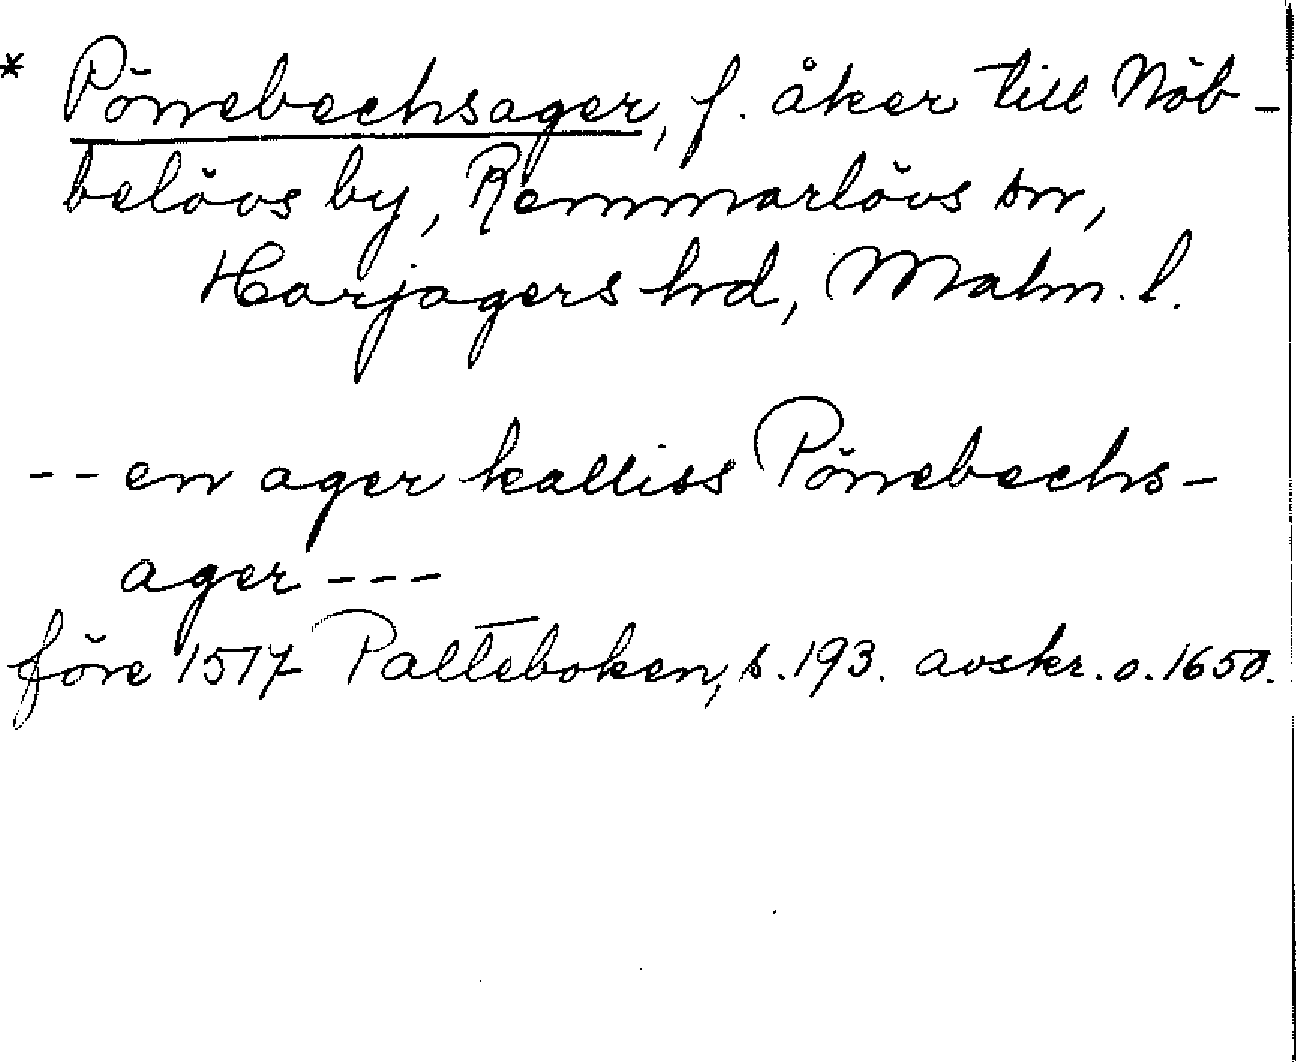 * Pörrebechsager, f. åker till Nöb-
belövs by, Remmarlövs sn,
Harjagers hd, Malm. l.
-- en ager kalliss Pörrebechs-
ager ---
före 1517 Palteboken, s. 193. avskr. o. 1650.